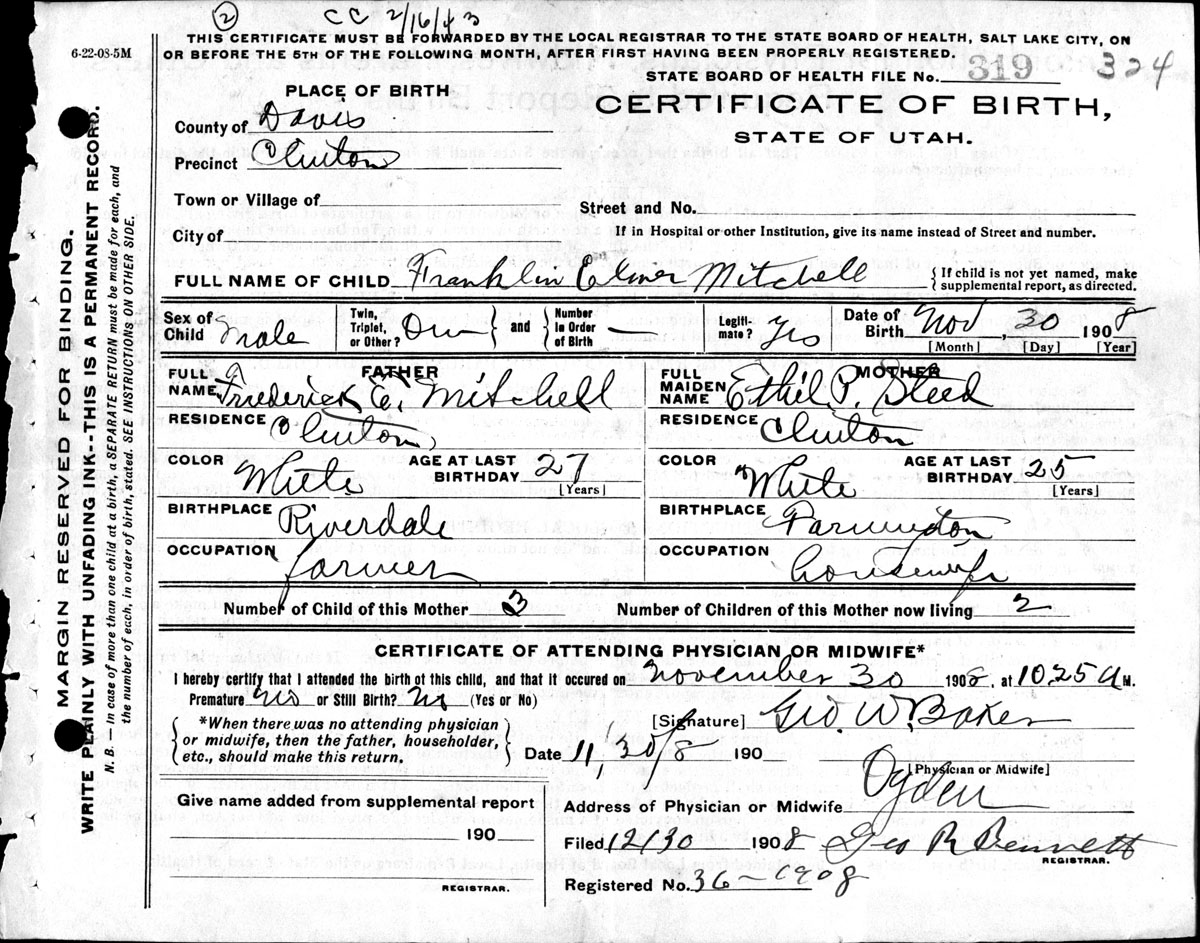 ② CC 2/16/43
THIS CERTIFICATE MUST BE FORWARDED BY THE LOCAL REGISTRAR TO THE STATE BOARD OF HEALTH, SALT LAKE CITY, ON
6-22-08-5M OR BEFORE THE 5TH OF THE FOLLOWING MONTH, AFTER FIRST HAVING BEEN PROPERLY REGISTERED.
STATE BOARD OF HEALTH FILE No. 319 324
PLACE OF BIRTH
CERTIFICATE OF BIRTH,
STATE OF UTAH.
County of Davis
Precinct Clinton
Town or Village of
Street and No.
City of
If in Hospital or other Institution, give its name instead of Street and number.
FULL NAME OF CHILD Franklin Elmer Mitchell { If child is not yet named, make supplemental report, as directed.
Sex of Child Male Twin, Triplet, or Other? and Number In Order of Birth — Legiti-mate? Yes Date of Birth Nov, 30 1908
[Month] [Day] [Year]
FATHER
MOTHER
FULL NAME Friederick E. Mitchell
FULL MAIDEN NAME Ethel P. Steed
RESIDENCE Clinton
RESIDENCE Clinton
COLOR White AGE AT LAST BIRTHDAY 27 [Years]
COLOR White AGE AT LAST BIRTHDAY 25 [Years]
BIRTHPLACE Riverdale
BIRTHPLACE Farmington
OCCUPATION farmer
OCCUPATION housewife
Number of Child of this Mother 3 Number of Children of this Mother now living 2
CERTIFICATE OF ATTENDING PHYSICIAN OR MIDWIFE*
I hereby certify that I attended the birth of this child, and that it occured on November 30 1908, at 10.25 A M.
Premature? No or Still Birth? No (Yes or No)
*When there was no attending physician or midwife, then the father, householder, etc., should make this return.
[Signature] Geo. W. Baker
Date 11/30/8 190
[Physician or Midwife]
Address of Physician or Midwife Ogden
Give name added from supplemental report
190
REGISTRAR.
Filed 12/30 1908 Geo R Bennett
REGISTRAR.
Registered No. 36-1908
MARGIN RESERVED FOR BINDING.
WRITE PLAINLY WITH UNFADING INK--THIS IS A PERMANENT RECORD.
N. B. In case of more than one child at a birth, a SEPARATE RETURN must be made for each, and
the number of each, in order of birth, stated. SEE INSTRUCTIONS ON OTHER SIDE.